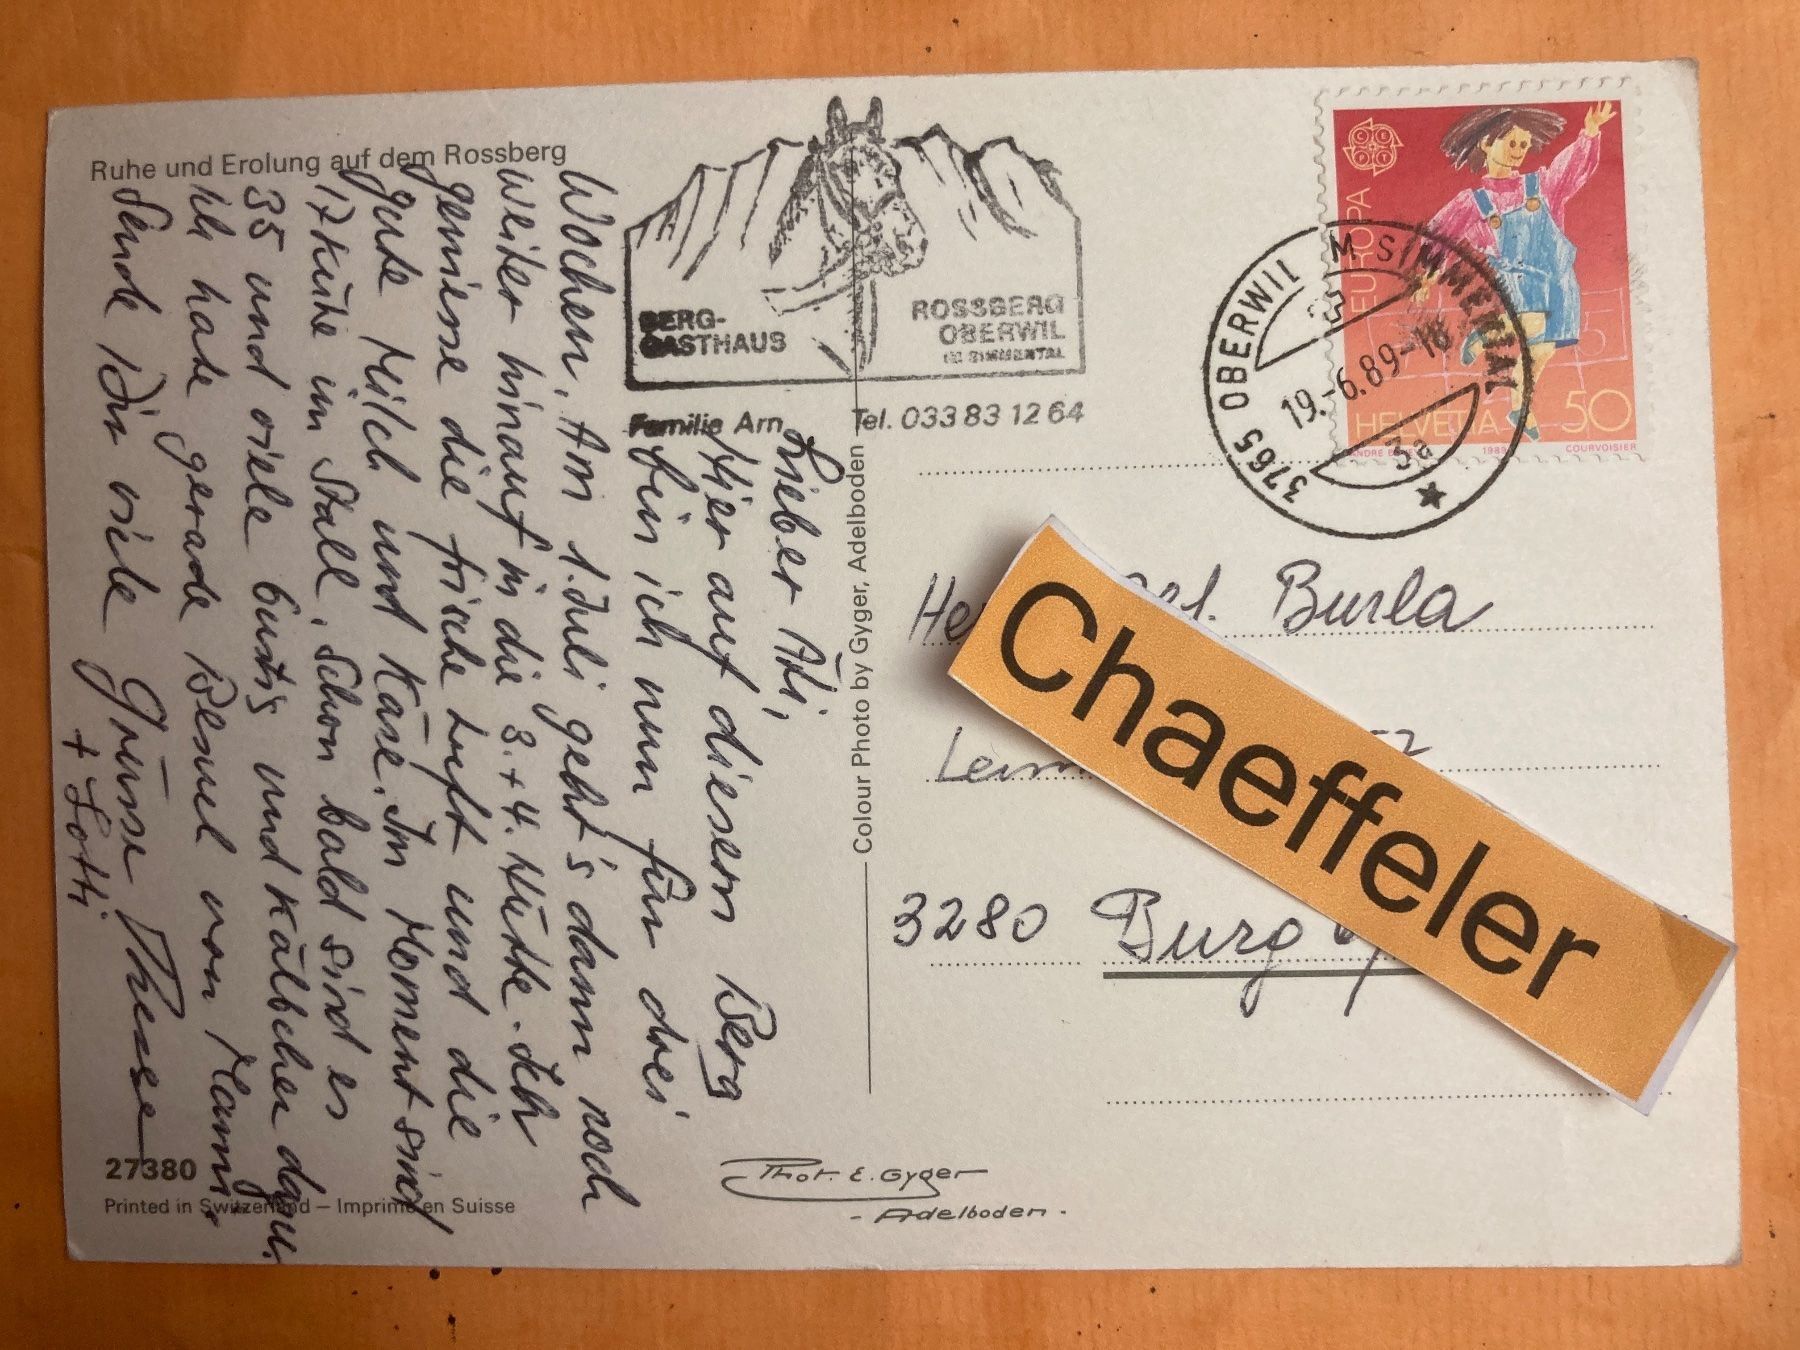 Ruhe und Erolung auf dem Rossberg
BERG-
GASTHAUS
ROSSBERG
OBERWIL
IM SIMMENTAL
Familie Arn
Tel. 033 83 12 64
Lieber Ädi,
Hier auf diesem Berg
bin ich nun für drei
Wochen. Am 1. Juli geht's dann noch
weiter hinauf in die 3. + 4. Hütte. Ich
geniesse die frische Luft und die
gute Milch und Käse. Im Moment sind
17 Kühe im Stall, schon bald sind es
35 und viele Gusti und Kälbchen dazu.
Ich habe gerade Besuch von Mami.
Sende Dir viele Grüsse Therese
+ Lotti
27380
Printed in Switzerland – Imprimé en Suisse
Colour Photo by Gyger, Adelboden
Phot. E. Gyger
- Adelboden -
EUROPA
CEPT
HELVETIA
50
1989
COURVOISIER
3765 OBERWIL IM SIMMENTAL
19.-6.89-18
3a
Burla
3280 Burg
Chaeffeler